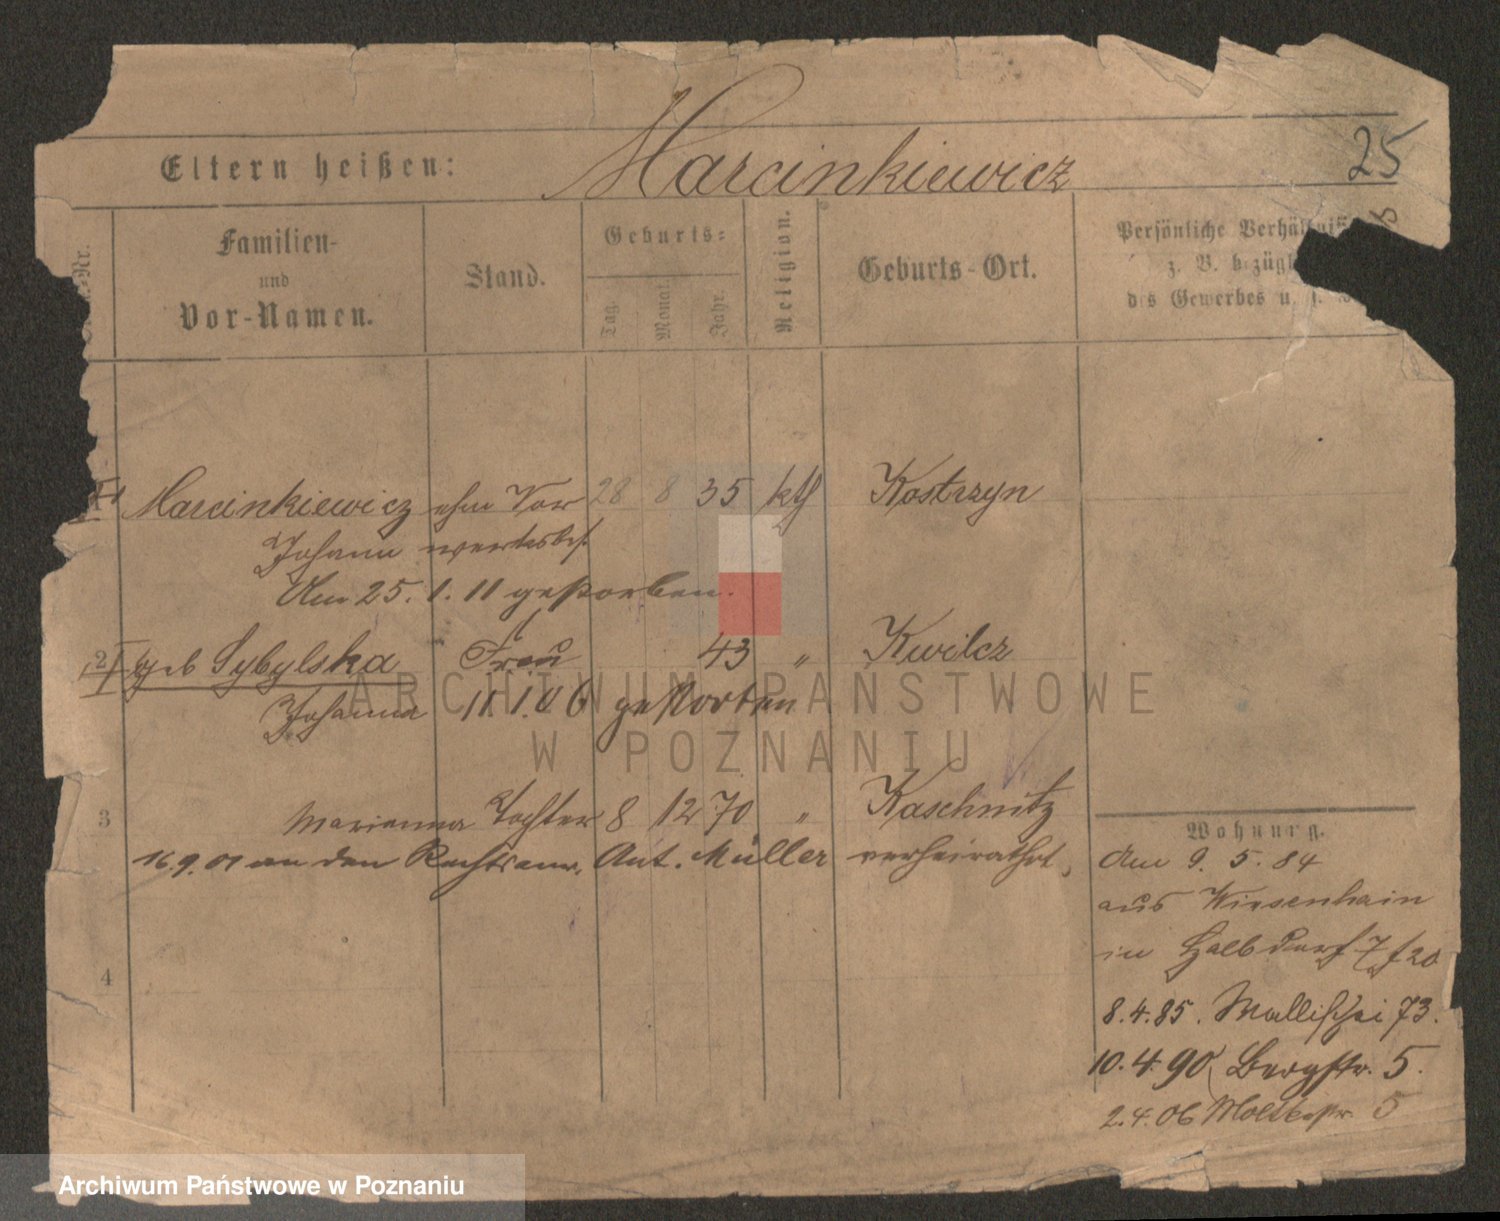 Eltern heißen: Marcinkiewicz 25
Nr.
Familien-
und
Vor-Namen.
Stand.
Geburts-
Tag.
Monat.
Jahr.
Religion.
Geburts-Ort.
Persönliche
z. B.
des Gewerbes u.
1 Marcinkiewicz ehm Vor 28 8 35 kth Kostrzyn
Johann werksbes.
Am 25. 1. 11 gestorben.
2 geb Sybylska Frau 43 " Kwilcz
Johanna 11.1.06 gestorben
3 Marianna Tochter 8 12 70 " Kaschnitz
16.9.01 an den Rechtsanw. Ant. Müller verheirathet.
4
Wohnung.
Am 9. 5. 84
aus Wiesenhain
in Halbdorf 7
8.4.85. Wallischei 73.
10.4.90 Bergstr. 5.
2.4.06 Moltkestr 5
ARCHIWUM PAŃSTWOWE
W POZNANIU
Archiwum Państwowe w Poznaniu